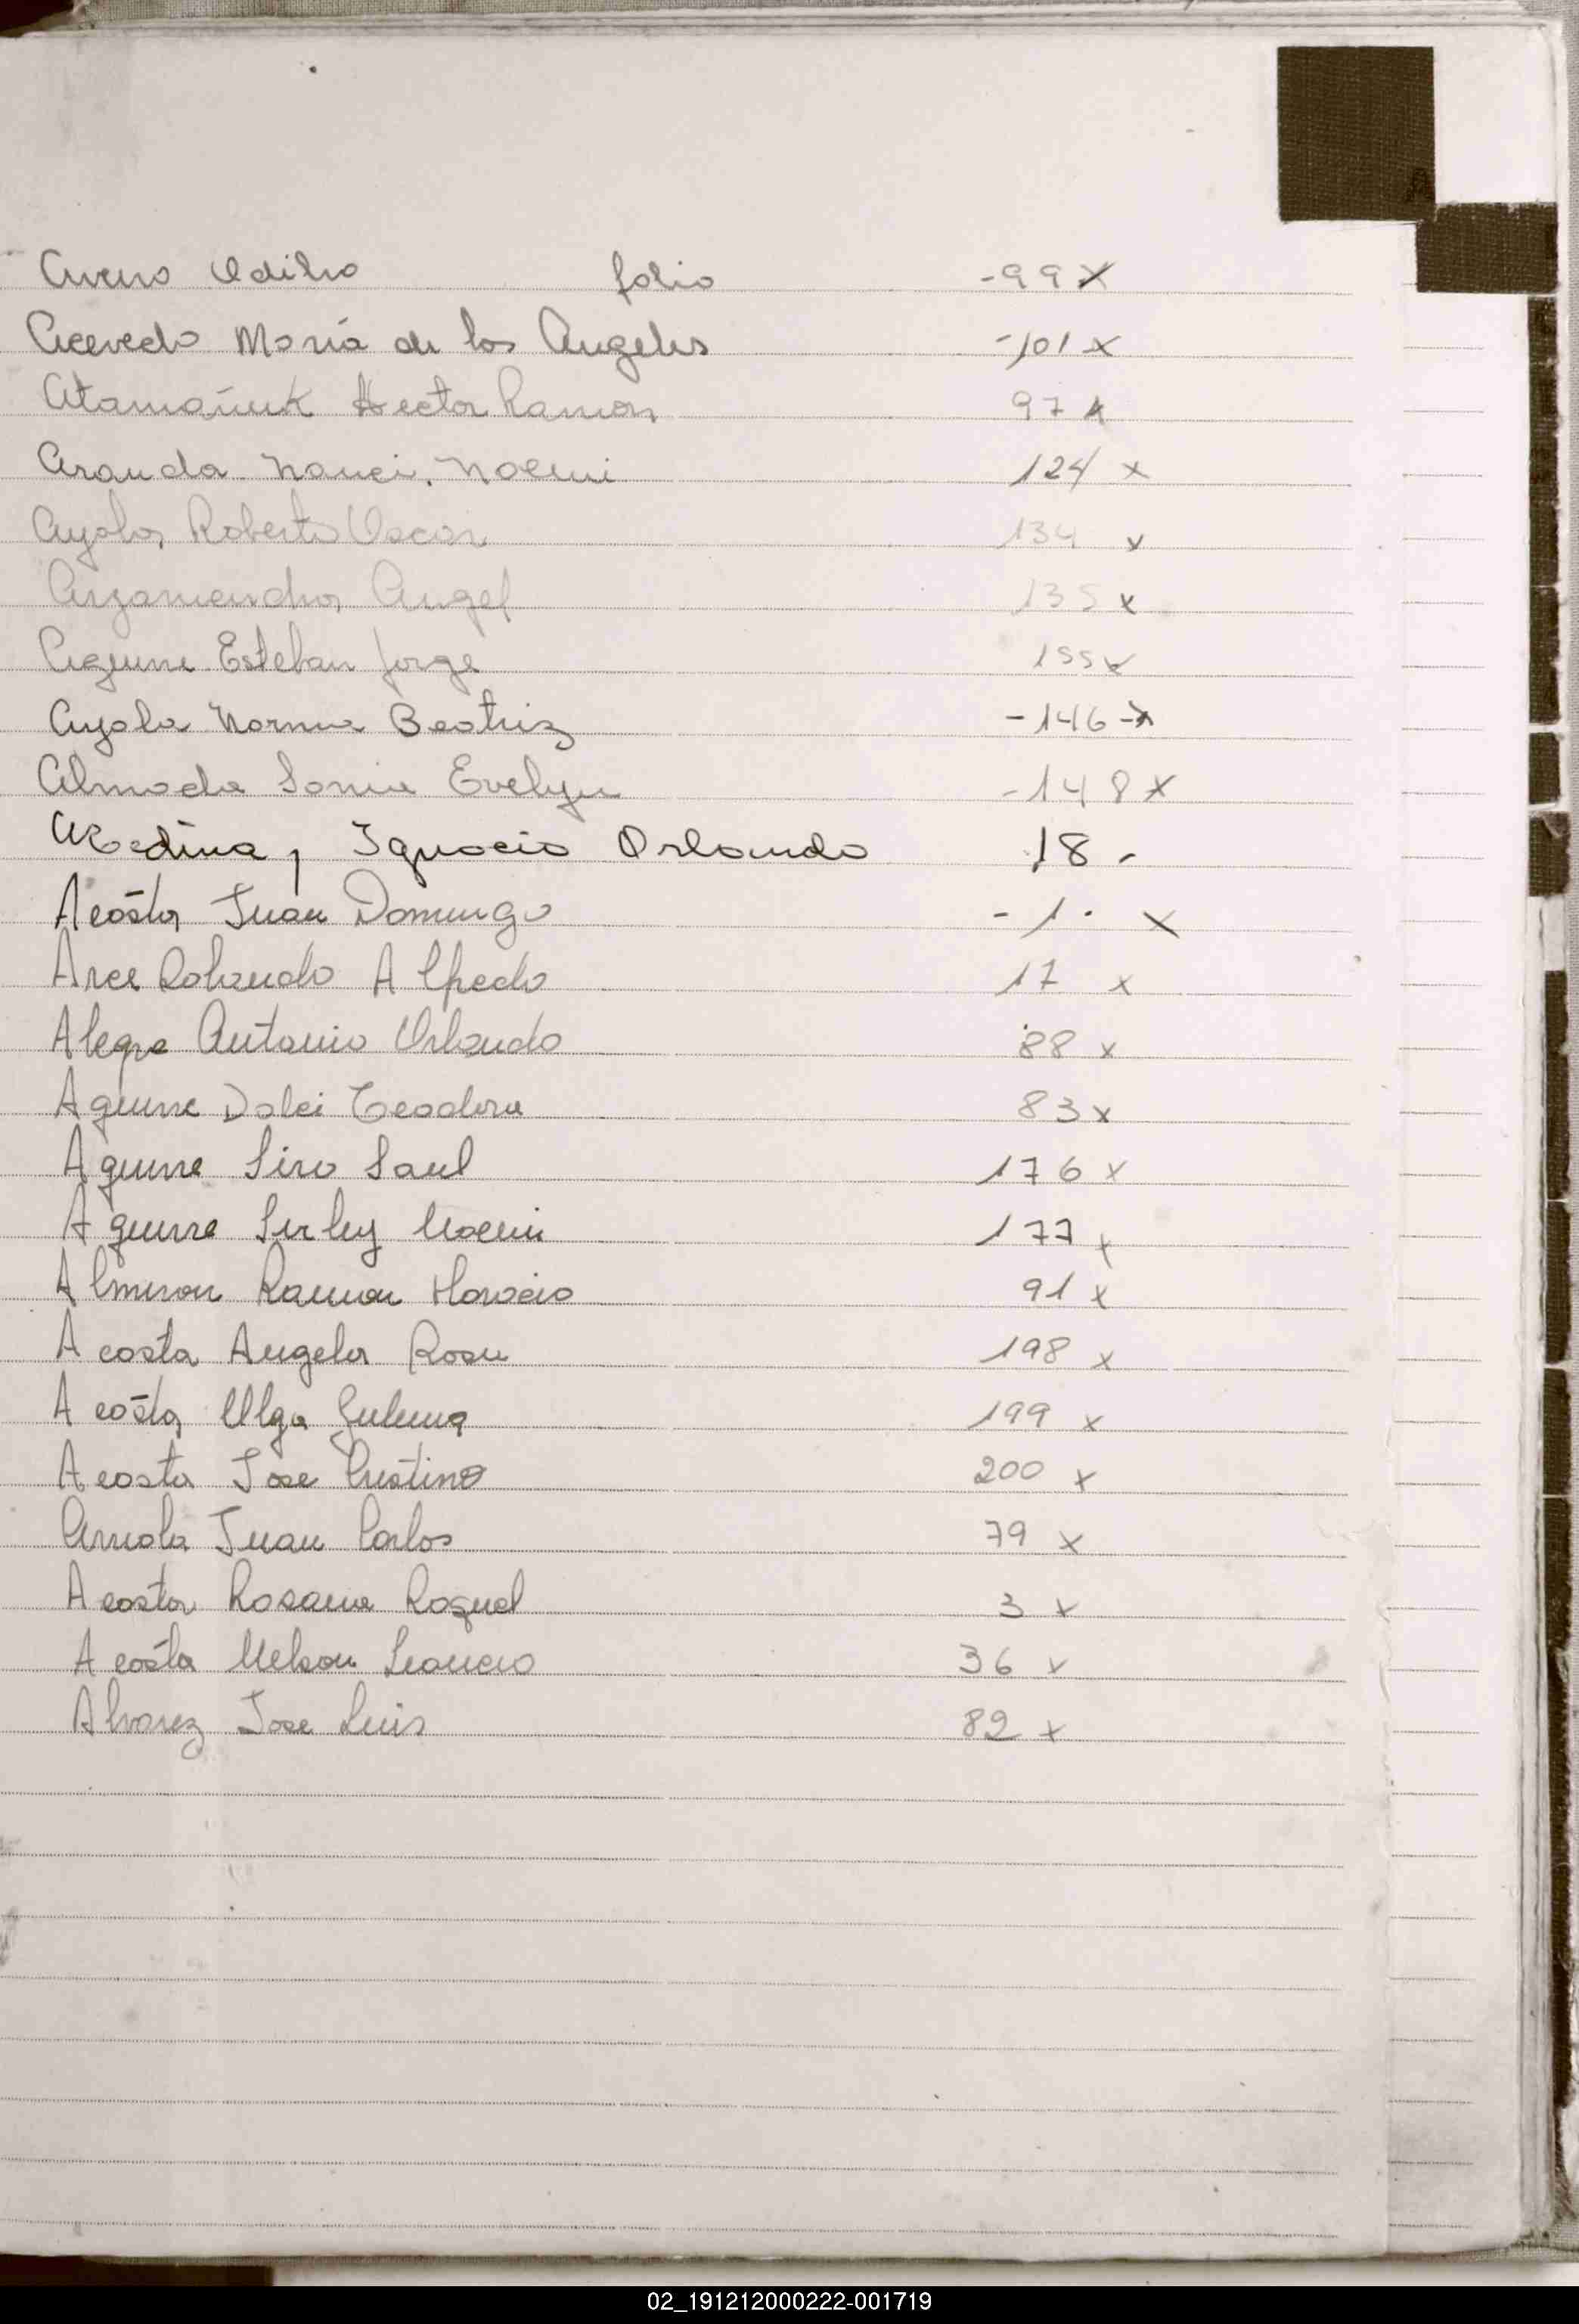 Odilio folio -99 x
Acevedo María de los Angeles -101 x
Atamañuk Hector Ramon 97 x
Aranda Nanci. Noemi 124 x
Ayala Roberto Oscar 134 x
Arzamendia Angel 135 x
Aguirre Esteban Jorge 155 x
Ayala Norma Beatriz -146 - x
Almada Sonia Evelyn -148 x
Medina, Ignacio Orlando 18 -
Acosta Juan Domingo - 1 . x
Arce Rolando Alfredo 17 x
Alegre Antonio Orlando 88 x
Aguirre Dolci Teodora 83 x
Aguirre Siro Saul 176 x
Aguirre Sirley Noemi 177 x
Almiron Ramon Horacio 91 x
Acosta Angela Rosa 198 x
Acosta Olga 199 x
Acosta Jose 200 x
Arriola Juan Carlos 79 x
Acosta Rosana Raquel 3 x
Acosta Nelson Leoncio 36 x
Alvarez Jose Luis 82 x
02_191212000222-001719